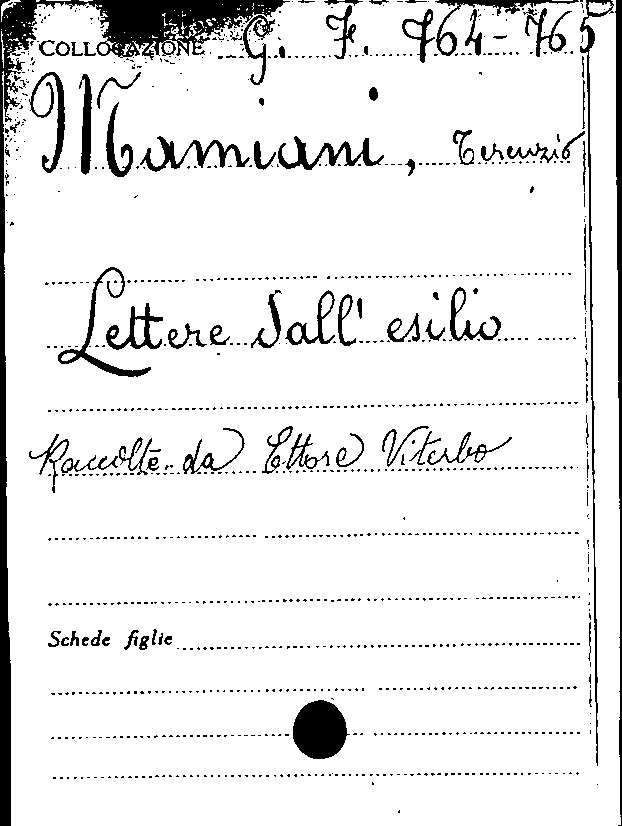 COLLOCAZIONE G. F. 764-765
Mamiani, Terenzio
Lettere dall' esilio
Raccolte da Ettore Viterbo
Schede figlie